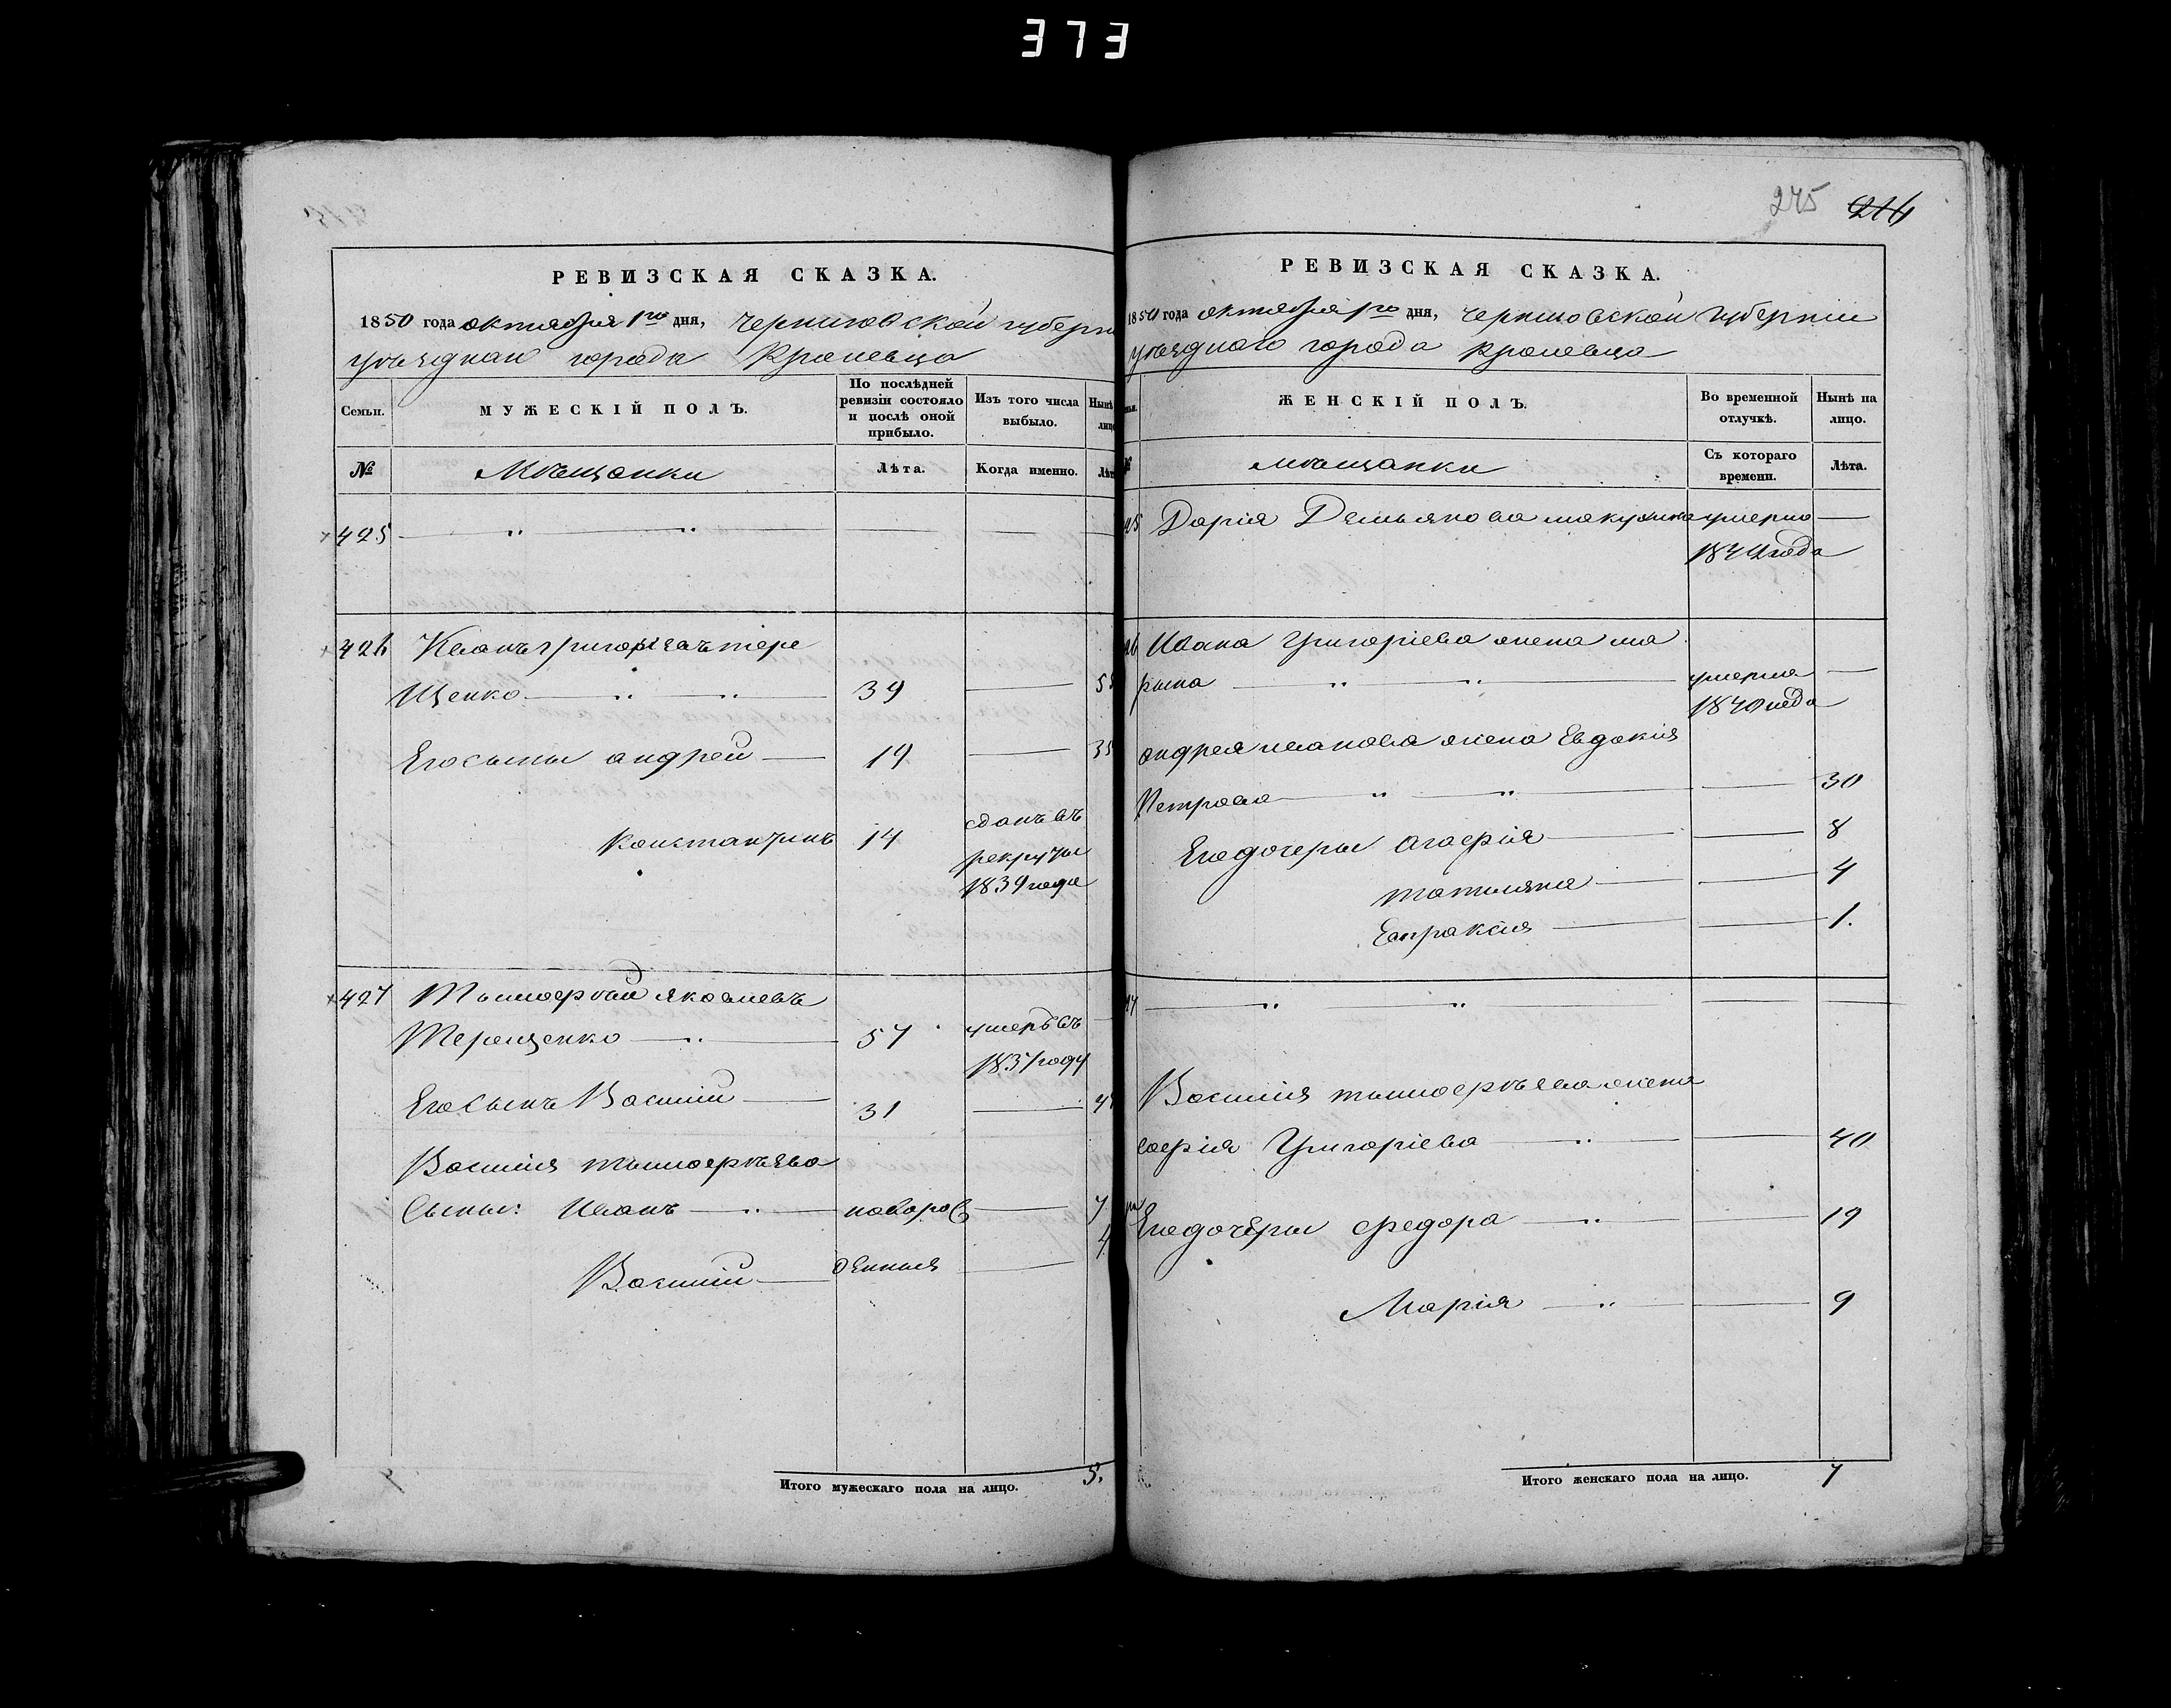 373
РЕВИЗСКАЯ СКАЗКА.
1850 года октября 1го дня, Черниговской губерн
уѣзднаго города Кролевца
Семьи.
МУЖЕСКІЙ ПОЛЪ.
По послѣдней ревизіи состояло и послѣ оной прибыло.
Изъ того числа выбыло.
Нынѣ лицо
№
Мѣщанки
Лѣта.
Когда именно.
Лѣт
425
426 Иванъ Григоріевъ Тере
щенко 39
Его сыны Андрей 19
Константинъ 14 сданъ въ
рекруты
1839 года
427 Тимоѳѣй Яковлевъ
Терещенко 57 умеръ въ
1837 году
Его сынъ Василій 31
Василія Тимоѳѣева
Сыны: Иванъ новорож 7
Василій денныя 4
Итого мужескаго пола на лицо. 5.
275 216
РЕВИЗСКАЯ СКАЗКА.
1850 года октября 1го дня, Черниговской губерніи
уѣзднаго города Кролевца
ЖЕНСКІЙ ПОЛЪ.
Во временной отлучкѣ.
Нынѣ на лицо.
Мѣщанки
Съ котораго времени.
Лѣта.
25 Дарія Демьянова умерла
года
26 Ивана Григоріева жена Ма
рина умерла
1840 года
Андрея Иванова жена Евдокія
Петрова 30
Его дочеры Агафія 8
Татияна 4
Евпраксія 1.
27
Василія Тимоѳѣева жена
Софія Григоріева 40
Его дочеры Федора 19
Марія 9
Итого женскаго пола на лицо. 7